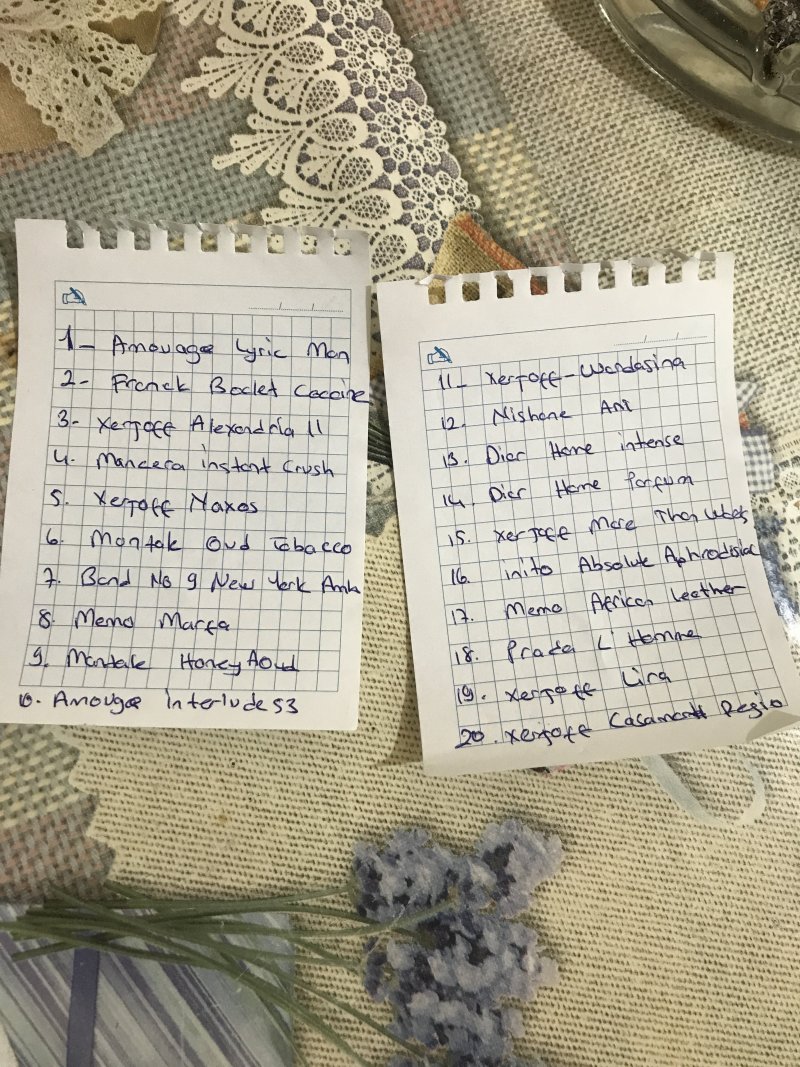 1- Amouage Lyric Man
2- Franck Boclet Cocaine
3- Xerjoff Alexandria II
4. Mancera instant Crush
5. Xerjoff Naxos
6. Montale Oud Tobacco
7. Bond No 9 New York Amb
8. Memo Marfa
9. Montale Honey Aoud
10. Amouge interlude 53
11- Xerjoff-Wardasina
12. Nishane Ani
13. Dior Home intense
14. Dior Home Parfum
15. Xerjoff More Than Words
16. inito Absolute Aphrodisiac
17. Memo African Leather
18. Prada L'Homme
19. Xerjoff Lira
20. Xerjoff Casamorti Regio